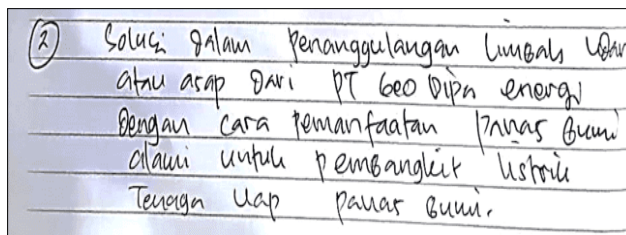 2 Solusi dalam penanggulangan limbah udara
atau asap dari PT Geo Dipa energi
dengan cara pemanfaatan panas bumi
alami untuk pembangkit listrik
Tenaga Uap panas bumi.